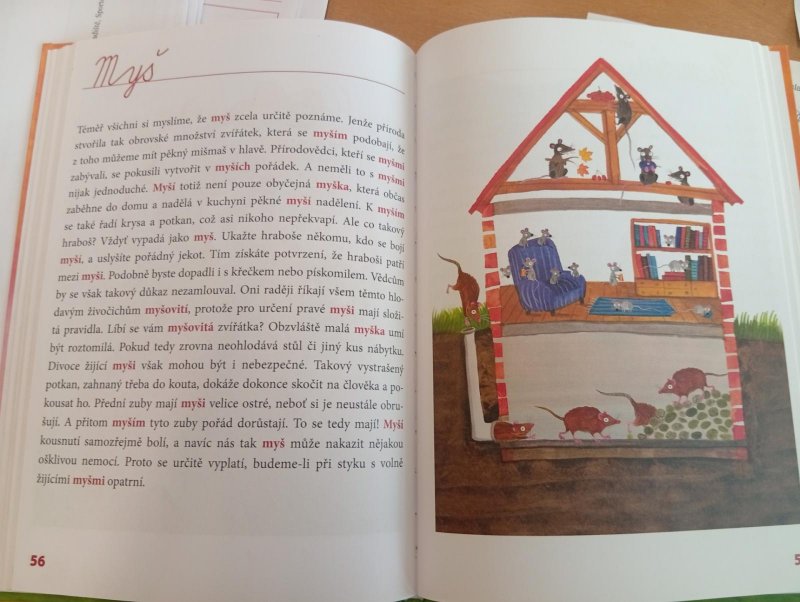 Myš
Téměř všichni si myslíme, že myš zcela určitě poznáme. Jenže příroda
stvořila tak obrovské množství zvířátek, která se myším podobají, že
z toho můžeme mít pěkný mišmaš v hlavě. Přírodovědci, kteří se myšmi
zabývali, se pokusili vytvořit v myších pořádek. A neměli to s myšmi
nijak jednoduché. Myší totiž není pouze obyčejná myška, která občas
zaběhne do domu a nadělá v kuchyni pěkné myší nadělení. K myším
se také řadí krysa a potkan, což asi nikoho nepřekvapí. Ale co takový
hraboš? Vždyť vypadá jako myš. Ukažte hraboše někomu, kdo se bojí
myší, a uslyšíte pořádný jekot. Tím získáte potvrzení, že hraboši patří
mezi myši. Podobně byste dopadli i s křečkem nebo pískomilem. Vědcům
by se však takový důkaz nezamlouval. Oni raději říkají všem těmto hlo-
davým živočichům myšovití, protože pro určení pravé myši mají slo­ži-
tá pravidla. Líbí se vám myšovitá zvířátka? Obzvláště malá myška umí
být roztomilá. Pokud tedy zrovna neohlodává stůl či jiný kus nábytku.
Divoce žijící myši však mohou být i nebezpečné. Takový vystrašený
potkan, zahnaný třeba do kouta, dokáže dokonce skočit na člověka a po-
kousat ho. Přední zuby mají myši velice ostré, neboť si je neustále obru-
šují. A přitom myším tyto zuby pořád dorůstají. To se tedy mají! Myší
kousnutí samozřejmě bolí, a navíc nás tak myš může nakazit nějakou
ošklivou nemocí. Proto se určitě vyplatí, budeme-li při styku s volně
žijícími myšmi opatrní.
56